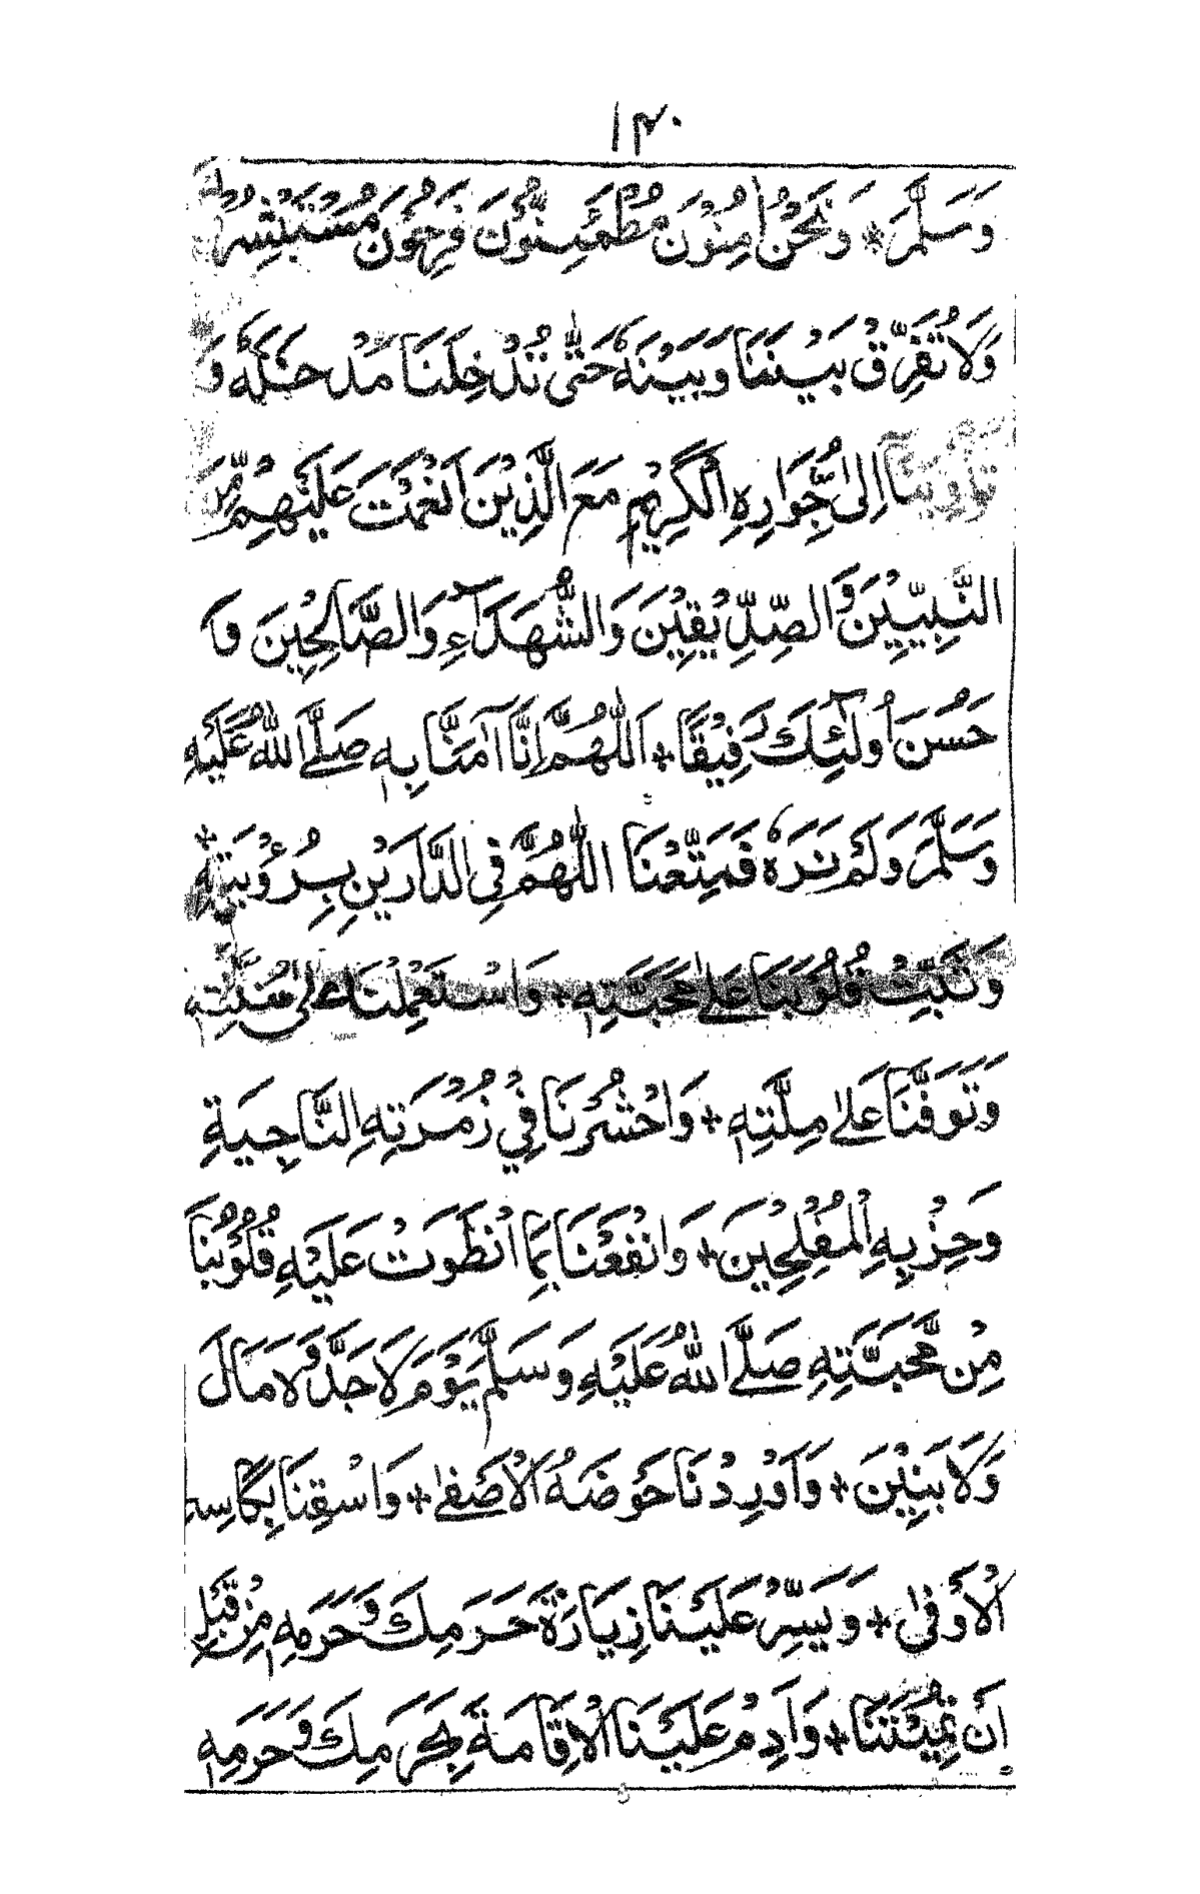 ١٣٠
وَسَلَّمَ * وَنَحْنُ اٰمِنُوْنَ مُطْمَئِنُّوْنَ فَرِحُوْنَ مُسْتَبْشِرُوْنَ
وَلَا تُفَرِّقْ بَيْنَنَا وَبَيْنَهٗ حَتّٰى تُدْخِلَنَا مَدْخَلَهٗ وَ
تُؤْوِيَنَآ اِلٰى جَوَارِهِ الْكَرِيْمِ مَعَ الَّذِيْنَ اَنْعَمْتَ عَلَيْهِمْ مِّنَ
النَّبِيّٖنَ وَالصِّدِّيْقِيْنَ وَالشُّهَدَآءِ وَالصَّالِحِيْنَ وَ
حَسُنَ اُولٰٓئِكَ رَفِيْقًا + اَللّٰهُمَّ اِنَّآ اٰمَنَّا بِهٖ صَلَّے اللهُ عَلَيْهِ
وَسَلَّمَ وَلَمْ نَرَهٗ فَمَتِّعْنَا اللّٰهُمَّ فِي الدَّارَيْنِ بِرُؤْيَتِهٖ +
وَثَبِّتْ قُلُوْبَنَا عَلٰے مَحَبَّتِهٖ + وَاسْتَعْمِلْنَا عَلٰى سُنَّتِهٖ
وَتَوَفَّنَا عَلٰے مِلَّتِهٖ + وَاحْشُرْنَا فِيْ زُمْرَتِهِ النَّاجِيَةِ
وَحِزْبِهِ الْمُفْلِحِيْنَ + وَانْفَعْنَا بِمَا انْطَوَتْ عَلَيْهِ قُلُوْبُنَا
مِنْ مَّحَبَّتِهٖ صَلَّے اللهُ عَلَيْهِ وَسَلَّمَ يَوْمَ لَا جَدَّ وَلَا مَالَ
وَلَا بَنِيْنَ + وَاَوْرِدْنَا حَوْضَهُ الْاَصْفٰے + وَاسْقِنَا بِكَاسِهِ
الْاَوْفٰى + وَيَسِّرْ عَلَيْنَا زِيَارَةَ حَرَمِكَ وَحَرَمِهٖ مِنْ قَبْلِ
اَنْ تُمِيْتَنَا + وَاَدِمْ عَلَيْنَا الْاِقَامَةَ بِحَرَمِكَ وَحَرَمِهٖ